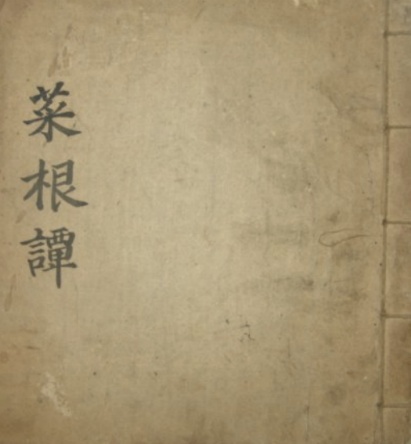 菜根譚